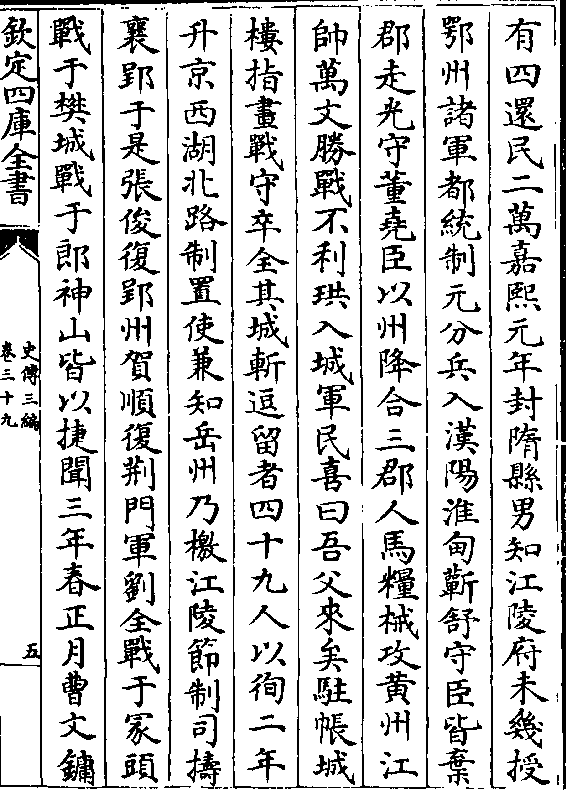 有四還民二萬嘉熙元年封隋縣男知江陵府未幾授
鄂州諸軍都統制元分兵入漢陽淮甸蘄舒守臣皆棄
郡走光守董堯臣以州降合三郡人馬糧械攻黄州江
帥萬文勝戰不利珙入城軍民喜曰吾父來矣駐帳城
樓指畫戰守卒全其城斬逗留者四十九人以徇二年
升京西湖北路制置使兼知岳州乃檄江陵節制司擣
襄郢于是張俊復郢州賀順復荆門軍劉全戰于冢頭
戰于樊城戰于郎神山皆以捷聞三年春正月曹文鏞
欽定四庫全書
史傳三編
卷三十九
五